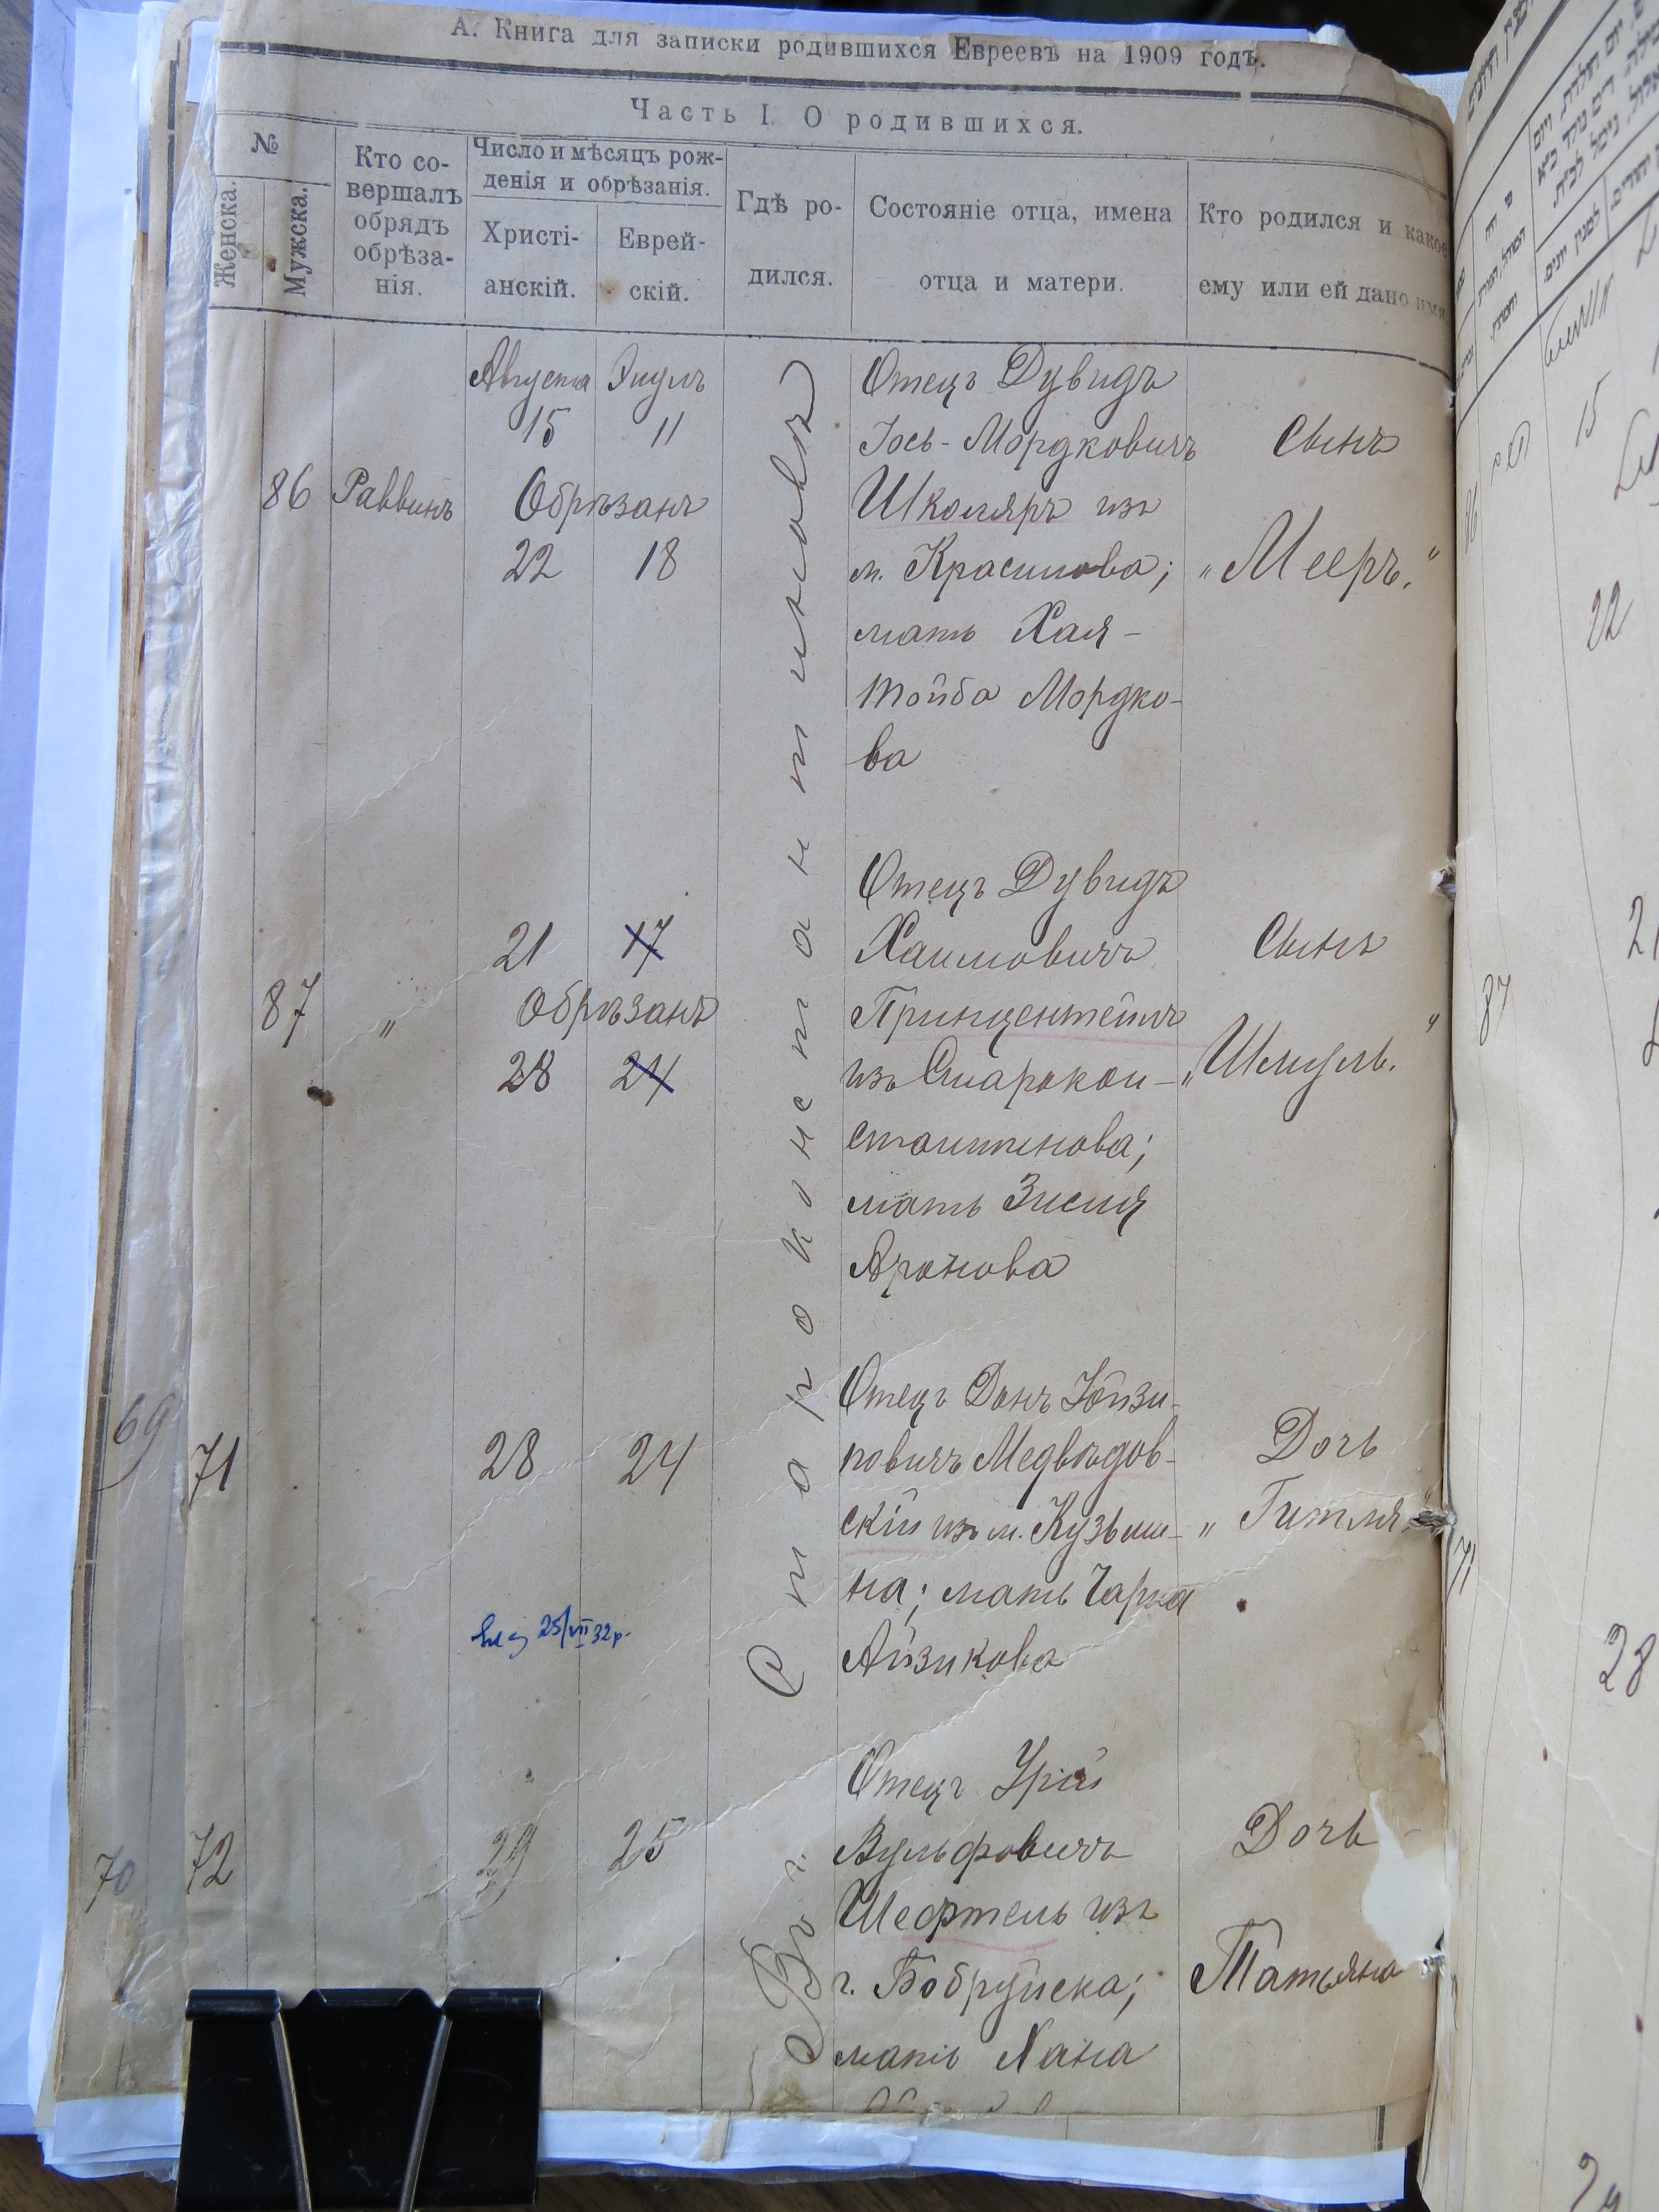 А. Книга для записки родившихся Евреевъ на 1909 годъ.
Часть I. О родившихся.
№
Женска.
Мужска.
Кто со-
вершалъ
обрядъ
обрѣза-
нія.
Число и мѣсяцъ рож-
денія и обрѣзанія.
Христі-
анскій.
Еврей-
скій.
Гдѣ ро-
дился.
Состояніе отца, имена
отца и матери.
Кто родился и какое
ему или ей дано имя.
Въ г. Староконстантиновѣ
86 Раввинъ
Августа Элулъ
15 11
Обрѣзанъ
22 18
Отецъ Дувидъ
Іось-Мордковичъ
Школяръ изъ
м. Красилова;
мать Хая-
Тойба Мордко-
ва
Сынъ
„Мееръ."
87 „
21 17
Обрѣзанъ
28 24
Отецъ Дувидъ
Хаимовичъ
Принцентейнъ
изъ Старокон-
стантинова;
мать Зисля
Аронова
Сынъ
„Шмуль."
69
71
28 24
Отецъ Донъ Іойзи-
повичъ Медвѣдов-
скій изъ м. Кузьми-
на; мать Чарна
Айзикова
Дочь
„Гитля."
25/VII 32р.
70
72
29 25
Отецъ Урій
Вульфовичъ
Шефтель изъ
г. Бобруйска;
мать Хана
Дочь
Татьяна
86
15
22
87
21
71
28